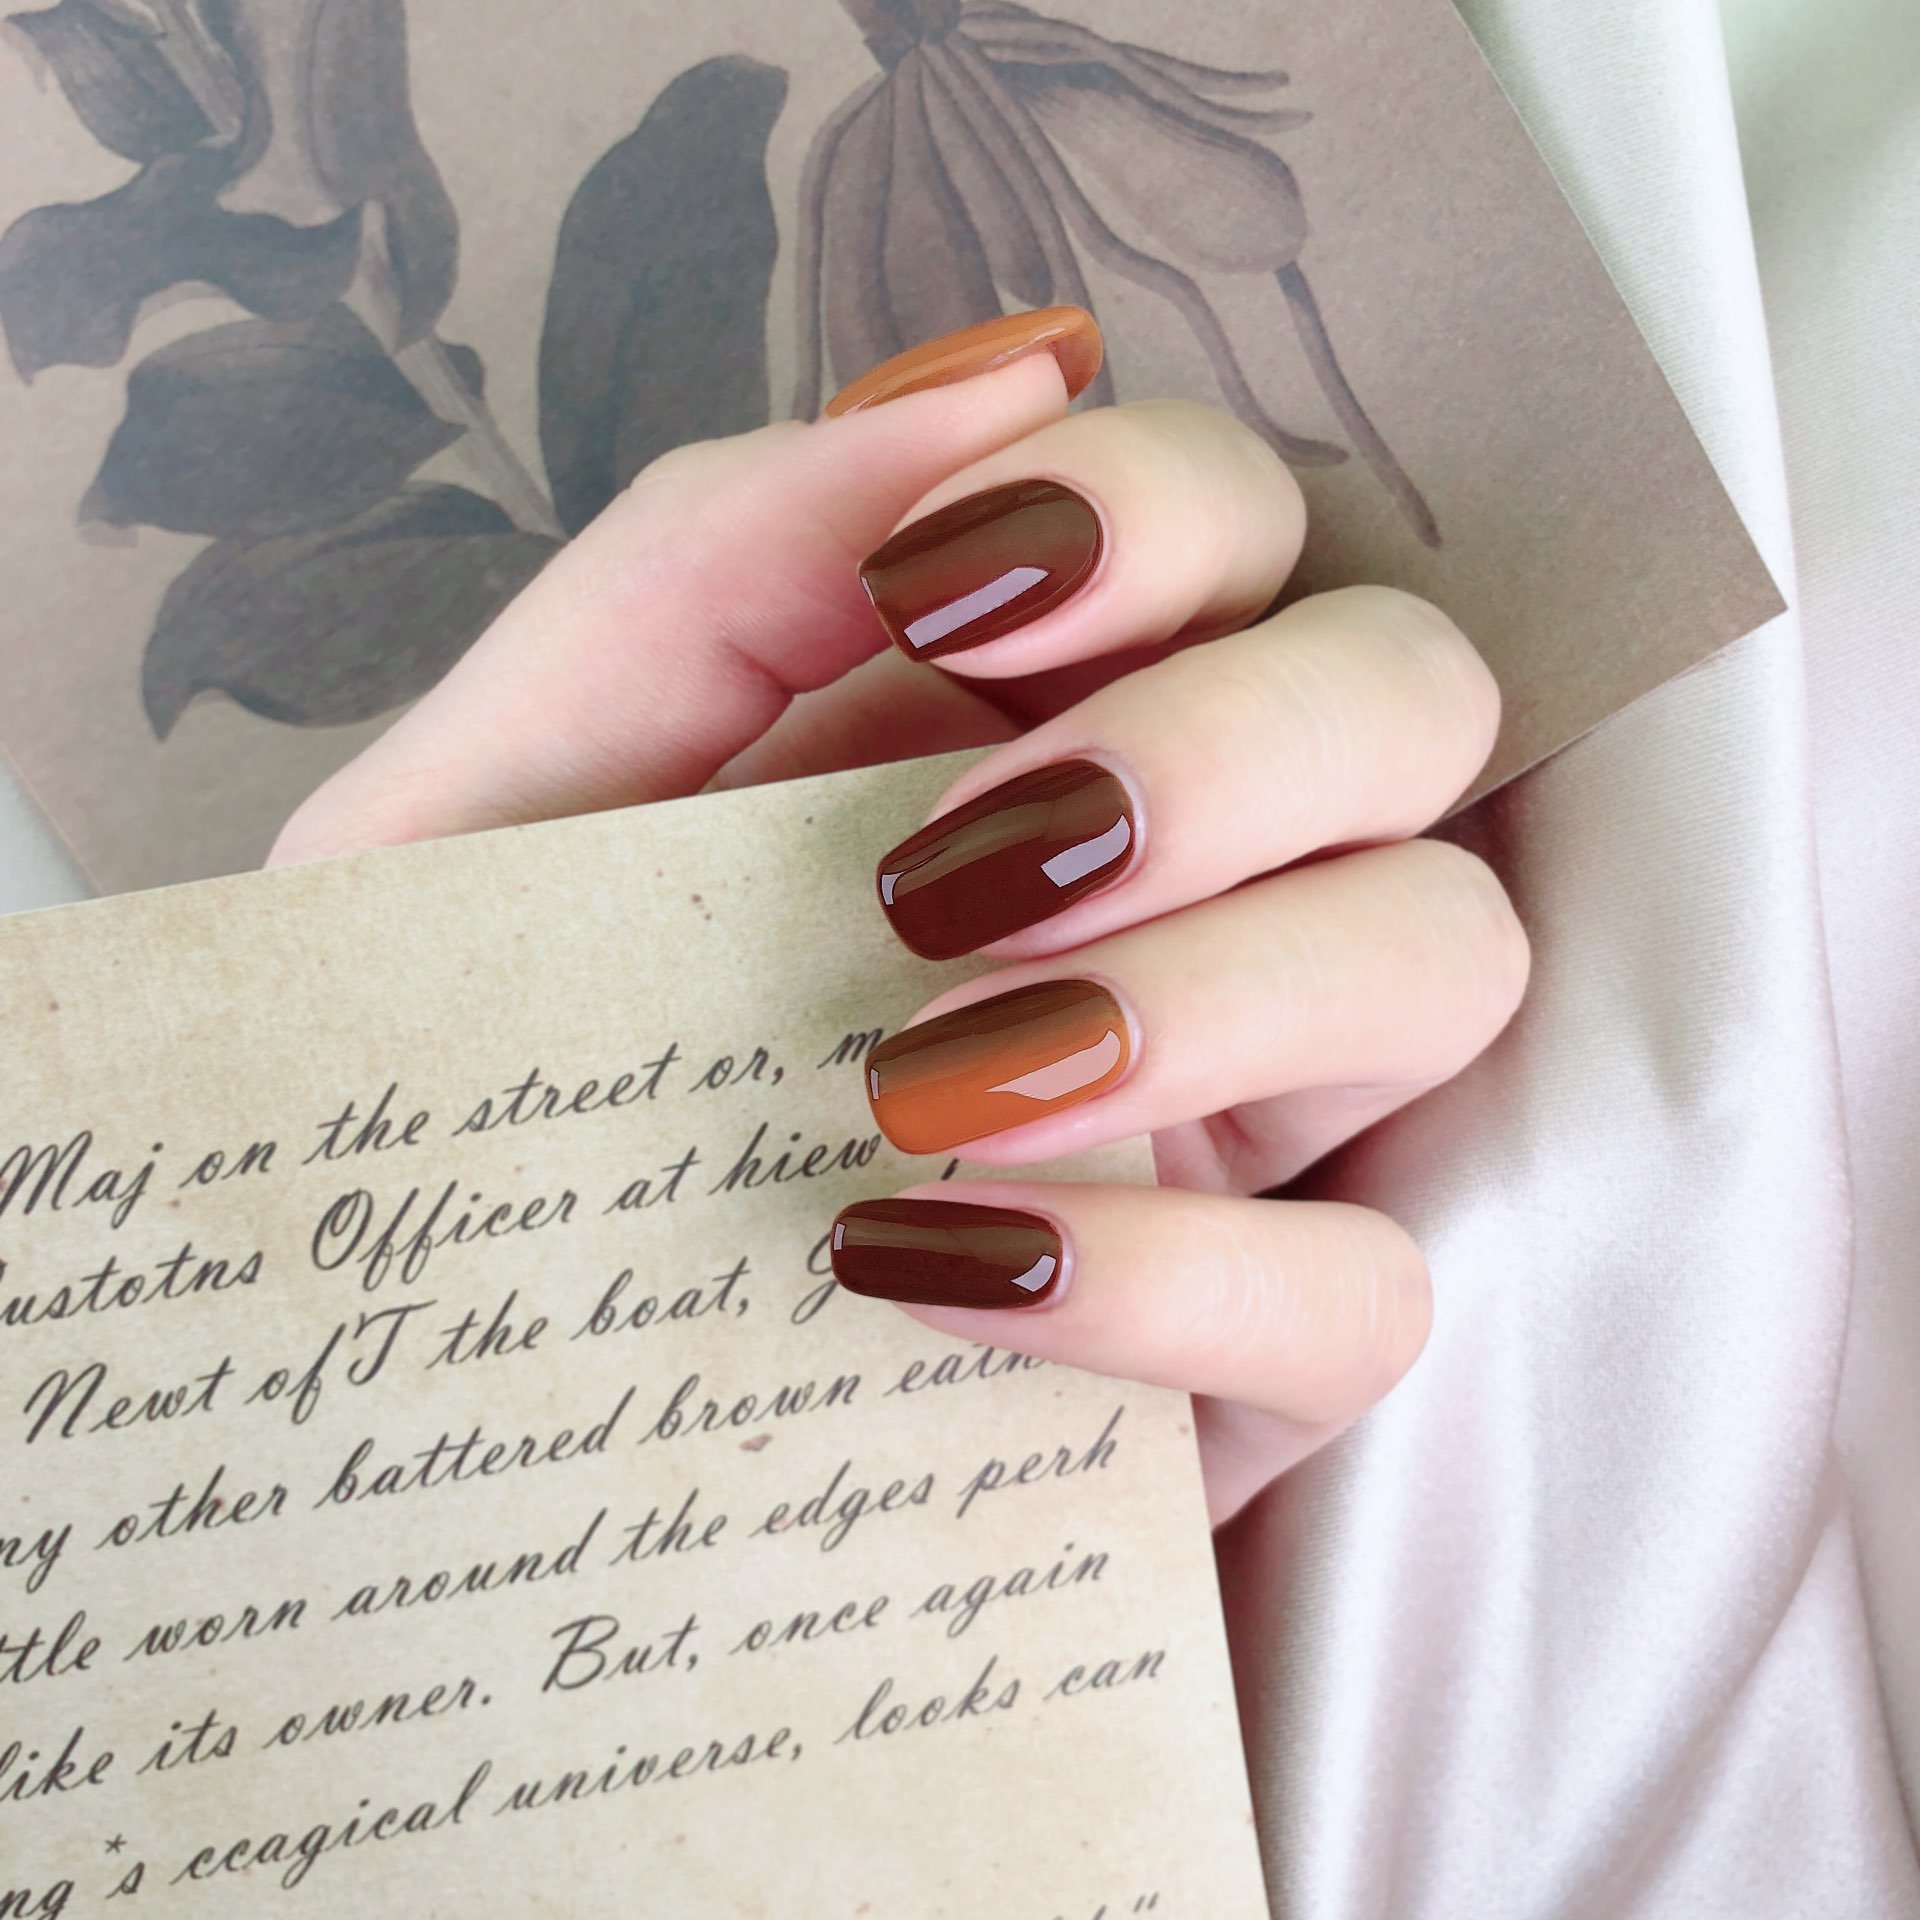 Maj on the street or, m
ustotns Officer at hiew
Newt of'T the boat, g
ny other battered brown eatn
ttle worn around the edges perh
like its owner. But, once again
ng*s ccagical universe, looks can
"